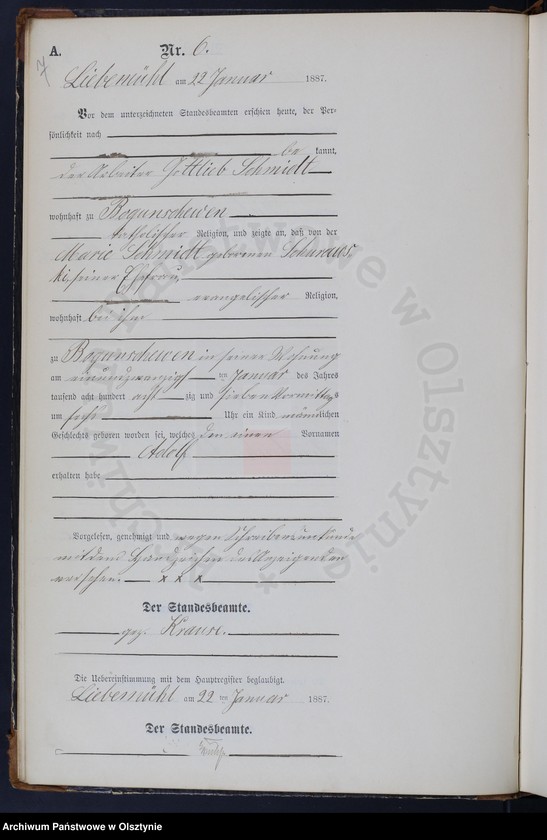 7
A.
Nr. 6.
Liebemühl am 22 Januar 1887.
Vor dem unterzeichneten Standesbeamten erschien heute, der Per-
sönlichkeit nach
be kannt,
der Arbeiter Gottlieb Schmidt
wohnhaft zu Bogunschewen
katholischer Religion, und zeigte an, daß von der
Marie Schmidt geborenen
seiner Ehefrau,
evangelischer Religion,
wohnhaft bei ihm
zu Bogunschewen in seiner Wohnung
am einundzwanzigst ten Januar des Jahres
tausend acht hundert acht zig und sieben Vormittags
um sechs Uhr ein Kind männlichen
Geschlechts geboren worden sei, welches den einen Vornamen
Adolf
erhalten habe
Vorgelesen, genehmigt und wegen Schreibensunkunde
mit dem Handzeichen des Anzeigenden
versehen. x x x
Der Standesbeamte.
gez. Krause.
Die Uebereinstimmung mit dem Hauptregister beglaubigt.
Liebemühl am 22 ten Januar 1887.
Der Standesbeamte.
Archiwum Państwowe w Olsztynie
Archiwum Państwowe w Olsztynie